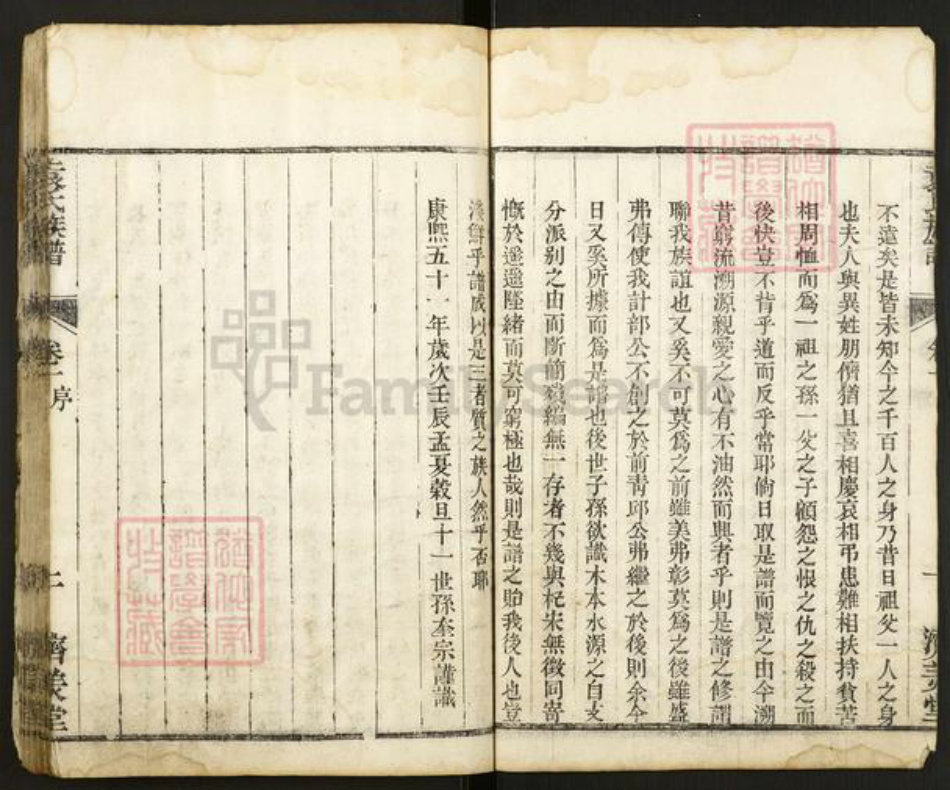 不遠矣是皆未知今之千百人之身乃昔日祖父一人之身
也夫人與異姓朋儕猶且喜相慶哀相弔患難相扶持貧苦
相周恤而爲一祖之孫一父之子顧怨之恨之仇之殺之而
後快豈不肯乎道而反乎常耶倘日取是譜而覽之由今溯
昔窮流溯源親愛之心有不油然而興者乎則是譜之修謂
聯我族誼也又奚不可莫爲之前雖美弗彰莫爲之後雖盛
弗傳使我計部公不創之於前靑邱公弗繼之於後則余今
日又奚所據而爲是譜也後世子孫欲識木本水源之自支
分派别之由而斷簡殘編無一存者不幾與杞宋無徵同寄
慨於遙遙墜緒而莫可窮極也哉則是譜之貽我後人也豈
淺鮮乎譜成以是三者質之族人然乎否耶
康熙五十一年歲次壬辰孟夏穀旦十一世孫奎宗謹識
袁氏族譜
卷一序
二
濟美堂
FamilySearch